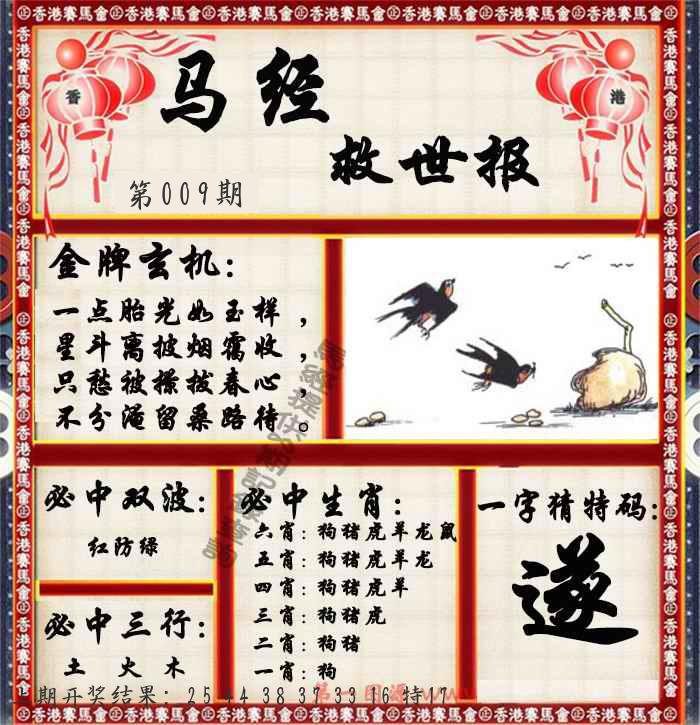 香港賽馬會
香
港
马经
救世报
第009期
金牌玄机:
一点胎光如玉样，
星斗离披烟霭收，
只愁被撩拔春心，
不分淹留桑路待。
必中双波:
红防绿
必中三行:
土 火 木
必中生肖:
六肖:狗猪虎羊龙鼠
五肖:狗猪虎羊龙
四肖:狗猪虎羊
三肖:狗猪虎
二肖:狗猪
一肖:狗
一字猜特码:
遂
期开奖结果: 25 44 38 37 33 16 特 7
第一图源